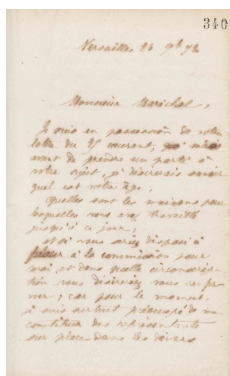 340
Versailles 26 9bre 72
Monsieur Maréchal,
Je suis en possession de votre
lettre du 25 courant; mais
avant de prendre un parti à
votre sujet, je désirerais savoir
quel est votre âge,
quelles sont les maisons pour
lesquelles vous avez travaillé
jusqu'à ce jour,
et si vous seriez disposé à
à la commission pour
moi, et dans quelle circonscrip-
tion vous désireriez vous renfer-
mer; car pour le moment
je suis surtout préoccupé de me
constituer des représentants
sur place dans les